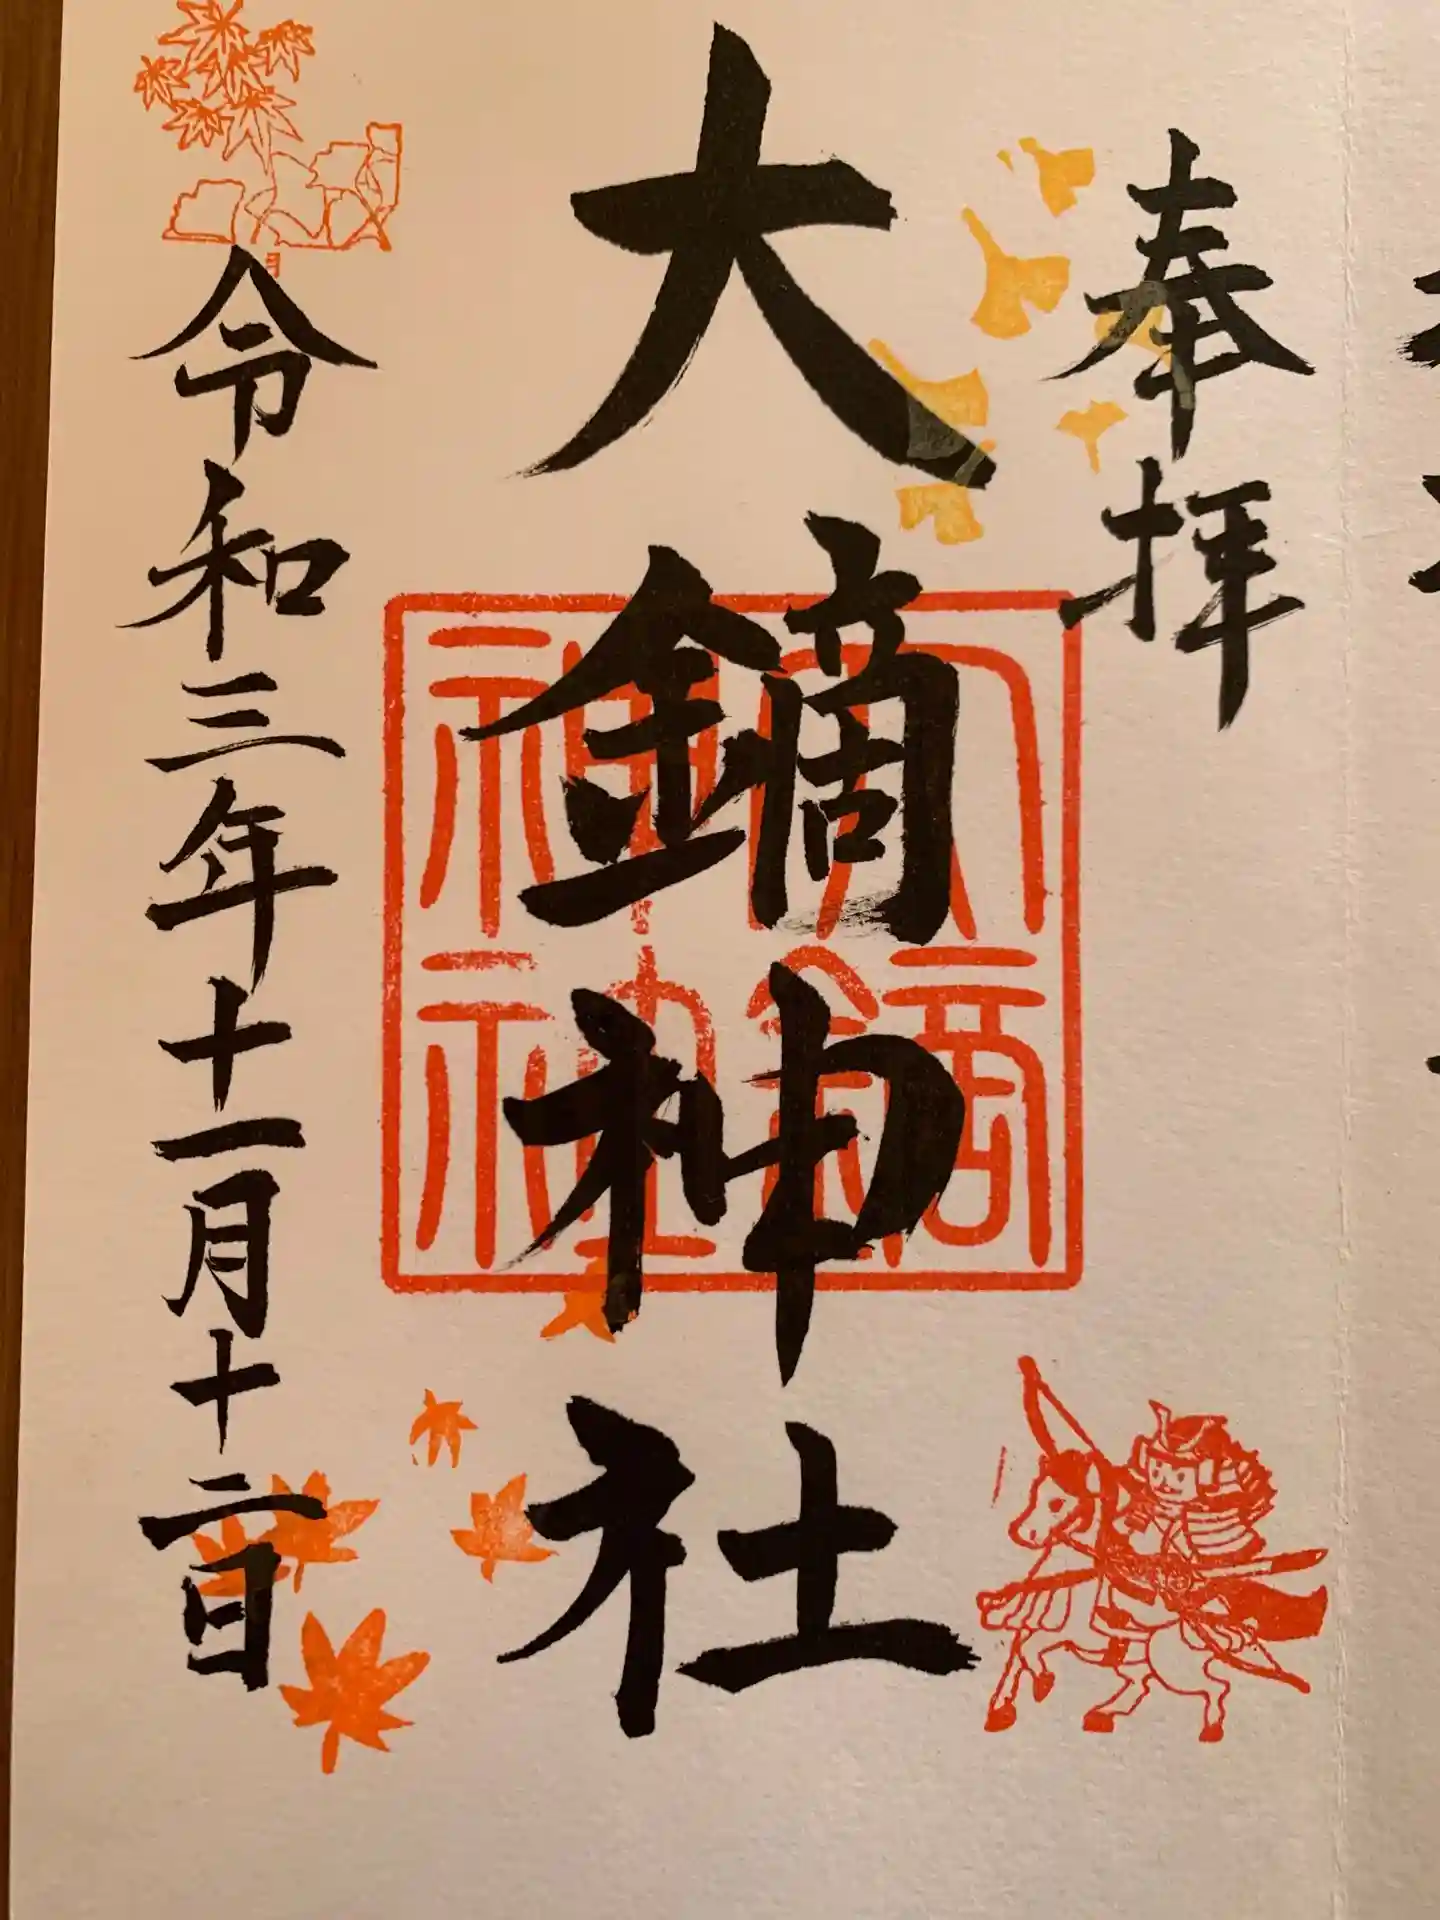 奉拝
大鏑神社
大鏑
神社
令和三年十一月十二日